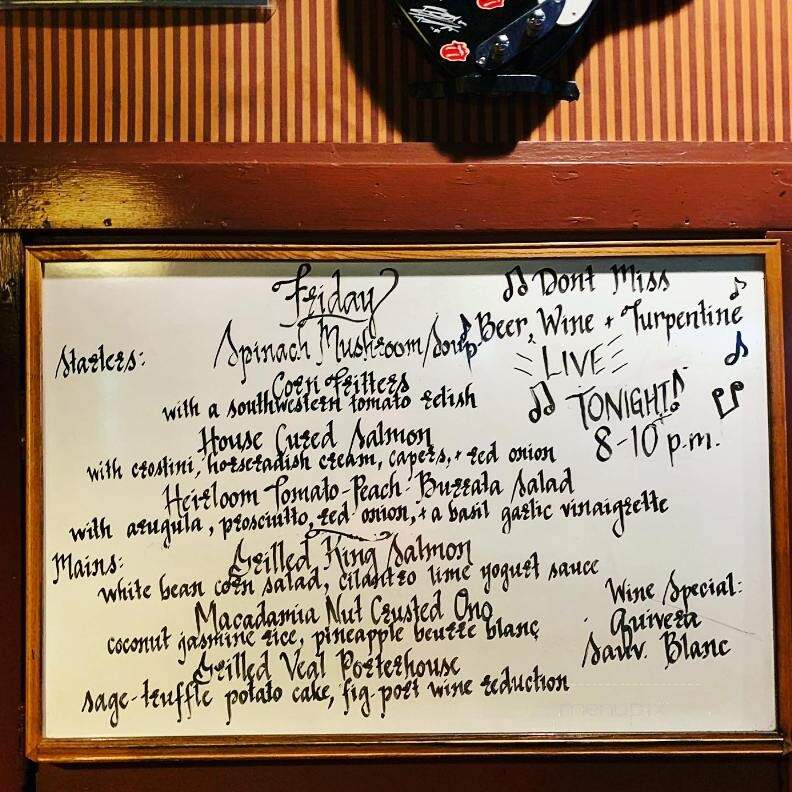 Friday
Starters:
Spinach Mushroom Soup
Corn Fritters
with a southwestern tomato relish
House Cured Salmon
with crostini, horseradish cream, capers, + red onion
Heirloom Tomato-Peach-Burrata Salad
with arugula, prosciutto, red onion, + a basil garlic vinaigrette
Mains:
Grilled King Salmon
white bean corn salad, cilantro lime yogurt sauce
Macadamia Nut Crusted Ono
coconut jasmine rice, pineapple beurre blanc
Grilled Veal Porterhouse
sage-truffle potato cake, fig-port wine reduction
Dont Miss
Beer, Wine + Turpentine
LIVE
TONIGHT!
8-10 p.m.
Wine Special:
Quivera
Sauv. Blanc
menupix